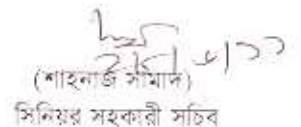 (শাহনাজ সামাদ)
সিনিয়র সহকারী সচিব